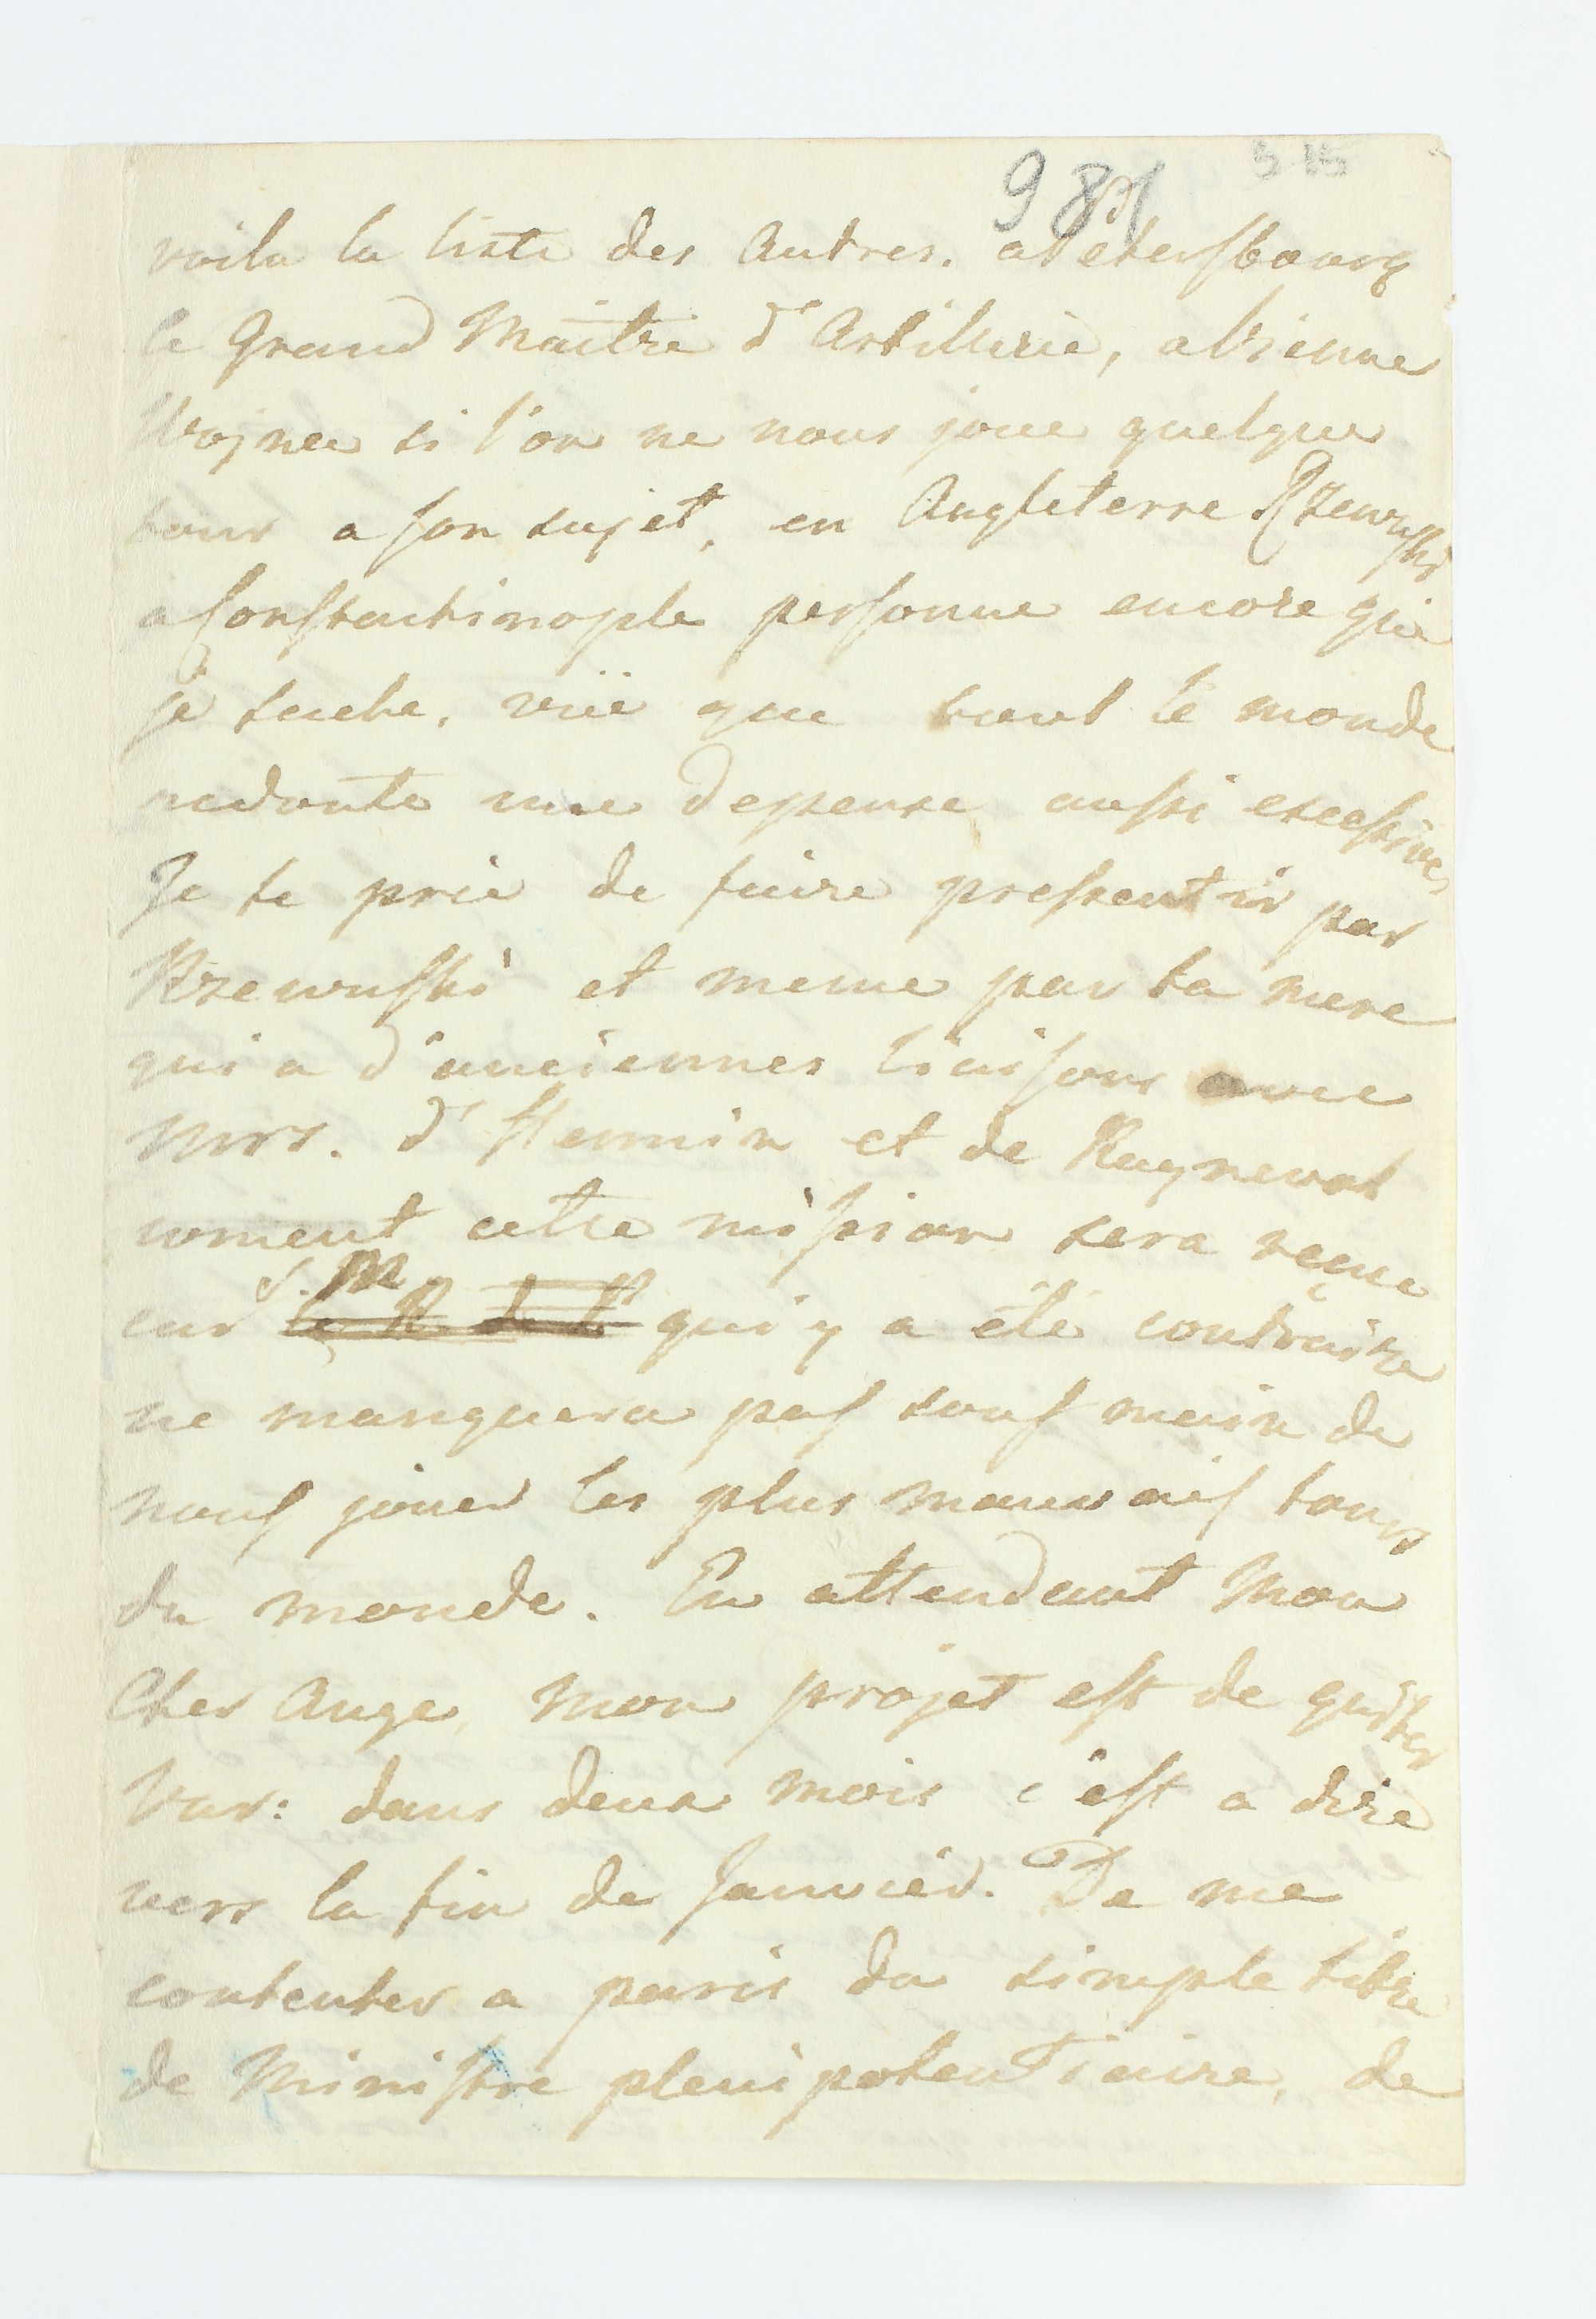 987
voila la liste des Autres. a Petersbourg
le Grand Maitre d'Artillerie, a Vienne
Woyna si l'on ne nous joue quelque
tour a son sujet, en Angleterre Rzewuski
a Constantinople personne encore que
je sache, vüe que tout le monde
redoute une depense aussi excessive,
Je te prie de faire pressentir par
Rzewuski et meme par ta mere
qui a d'anciennes liaisons avec
Mrs. d'Hennin et de Rayneval
coment cette mission sera reçue
car S. M qui y a été contraire
ne manquera pas sous main de
nous jouer les plus mauvais tours
du monde. En attendant Mon
Cher Ange, mon projet est de quitter
Var: dans deux mois c'est a dire
vers la fin de Janvier. De me
contenter a paris du simple titre
de Ministre plenipotentiaire, de